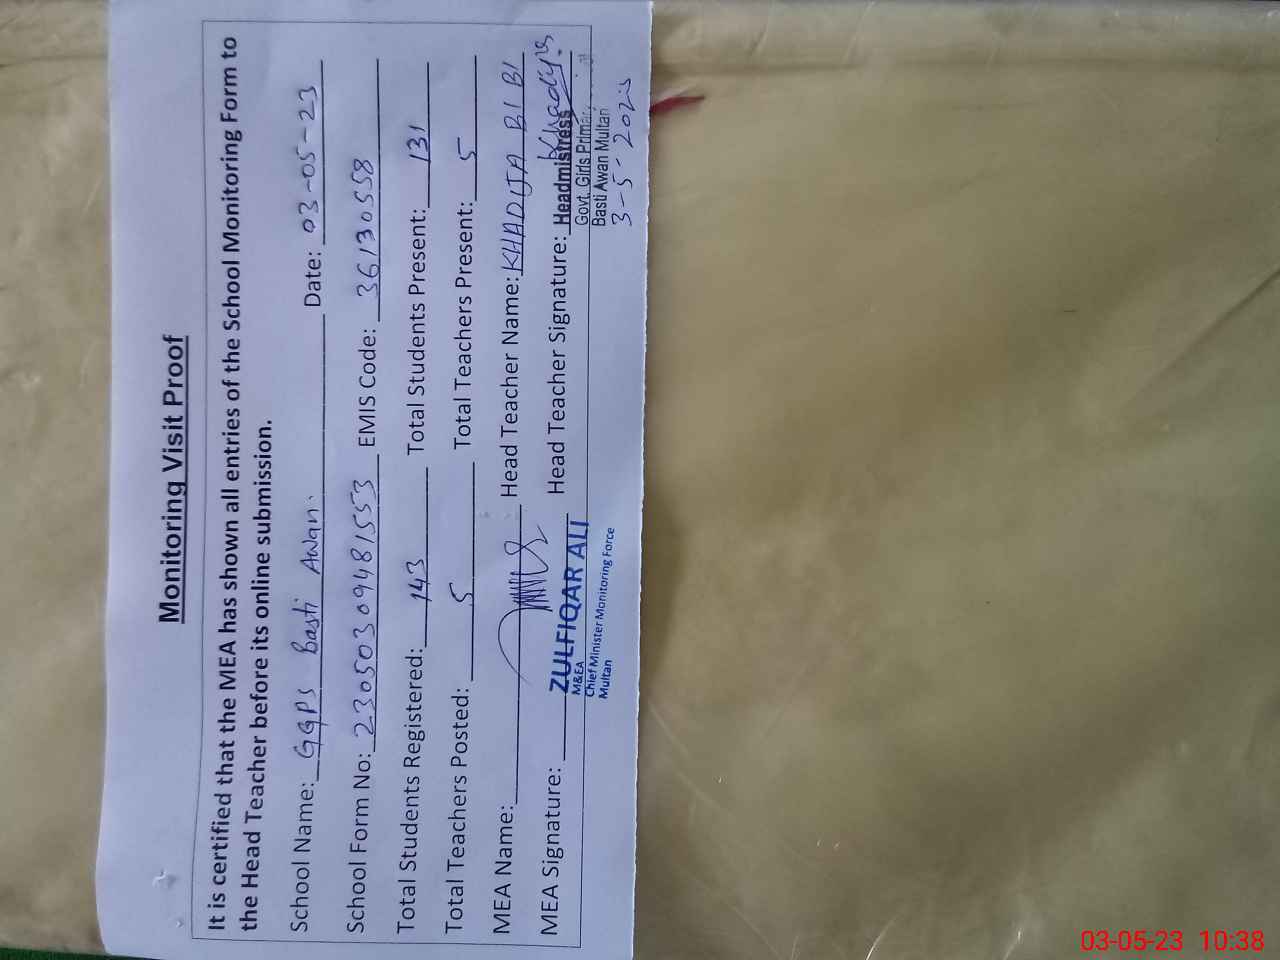 Monitoring Visit Proof
It is certified that the MEA has shown all entries of the School Monitoring Form to
the Head Teacher before its online submission.
School Name: GGPS Basti Awan. Date: 03-05-23
School Form No: 23050309481553 EMIS Code: 36130558
Total Students Registered: 143 Total Students Present: 131
Total Teachers Posted: 5 Total Teachers Present: 5
MEA Name: Head Teacher Name: KHADIJA BI BI
MEA Signature: Head Teacher Signature: Khadija
ZULFIQAR ALI
M&EA
Chief Minister Monitoring Force
Multan
Headmistress
Govt. Girls Primary
Basti Awan Multan
3-5-2023
03-05-23 10:38